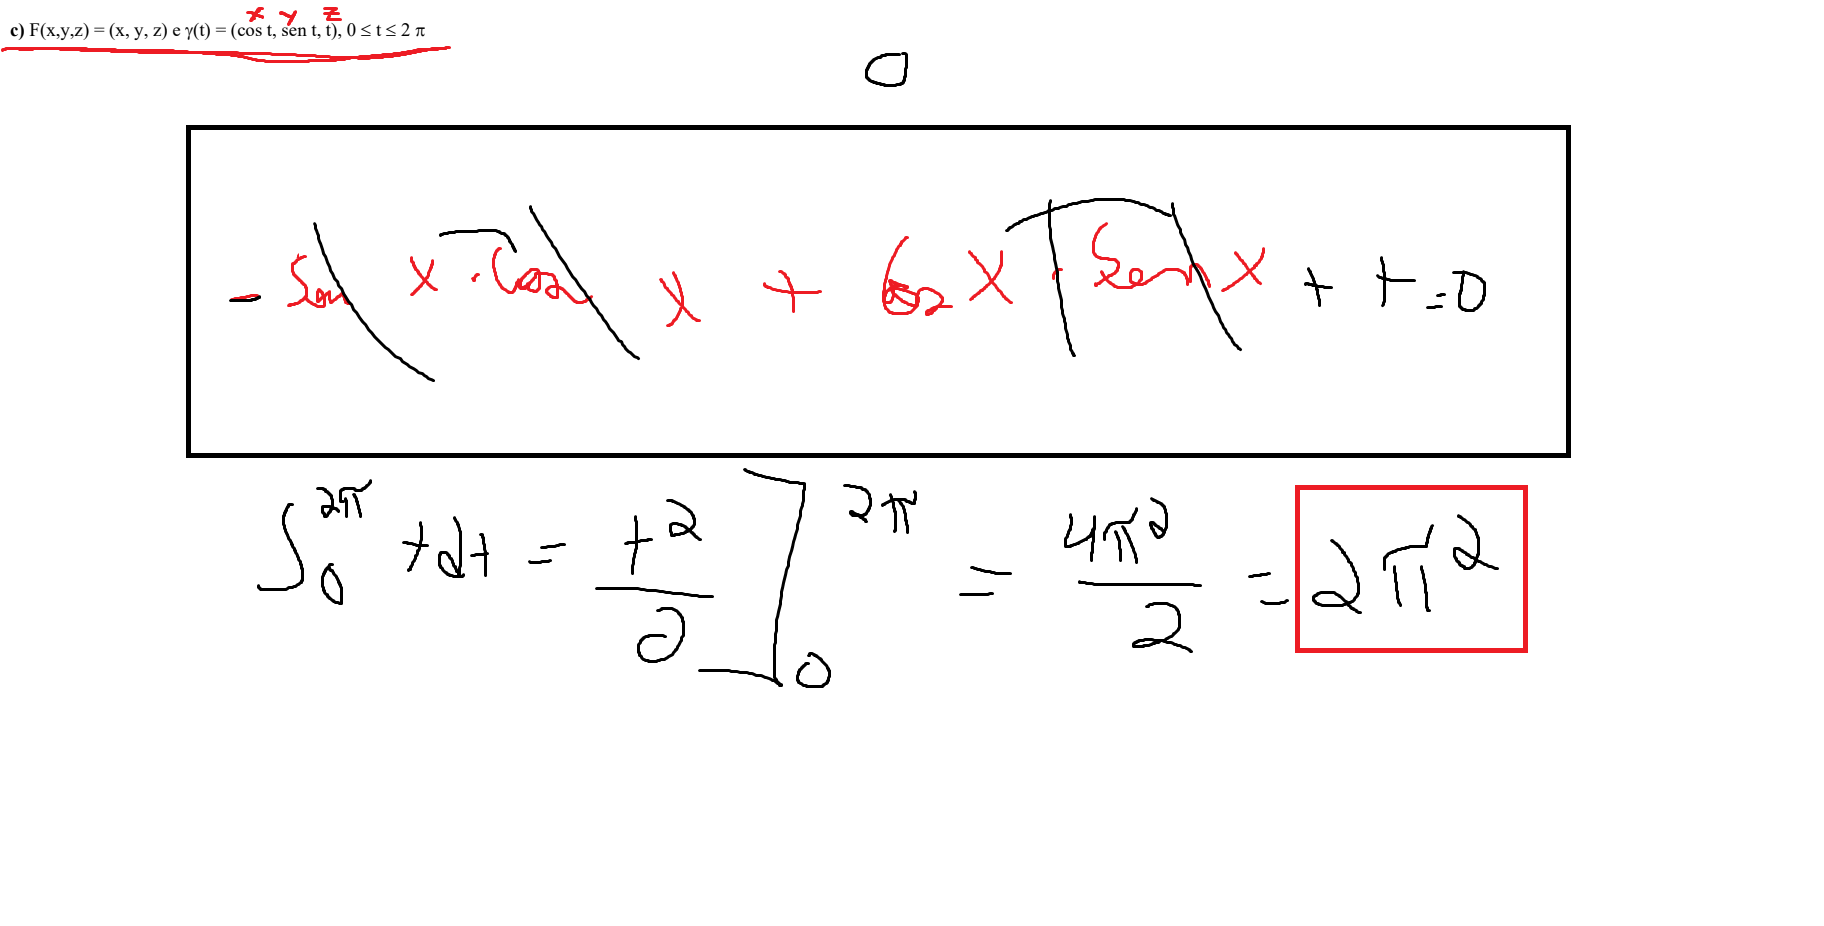 x y z
c) F(x,y,z) = (x, y, z) e γ(t) = (cos t, sen t, t), 0 ≤ t ≤ 2 π
0
- Sen x . Cos x + Cos x . Sen x + t = 0
∫₀^2π t dt = t²/2 ]₀^2π = 4π²/2 = 2π²